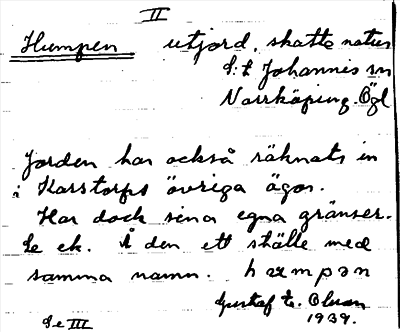 II
Humpen utjord, skatte natur
S:t Johannis sn
Norrköping. Ögl
Jorden har också räknats in
i Karstorps övriga ägor.
Har dock sina egna gränser.
Se ek. Å den ett ställe med
samma namn. hæmpən
Gustaf E. Olsson
1939.
Se III